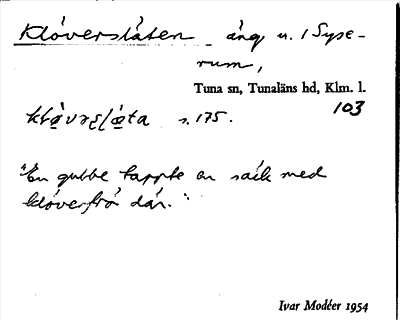 Klöverslåten äng u. / Syse-
rum,
Tuna sn, Tunaläns hd, Klm. l.
103
s. 175.
"En gubbe tappte en säck med
klöverfrö där."
Ivar Modéer 1954